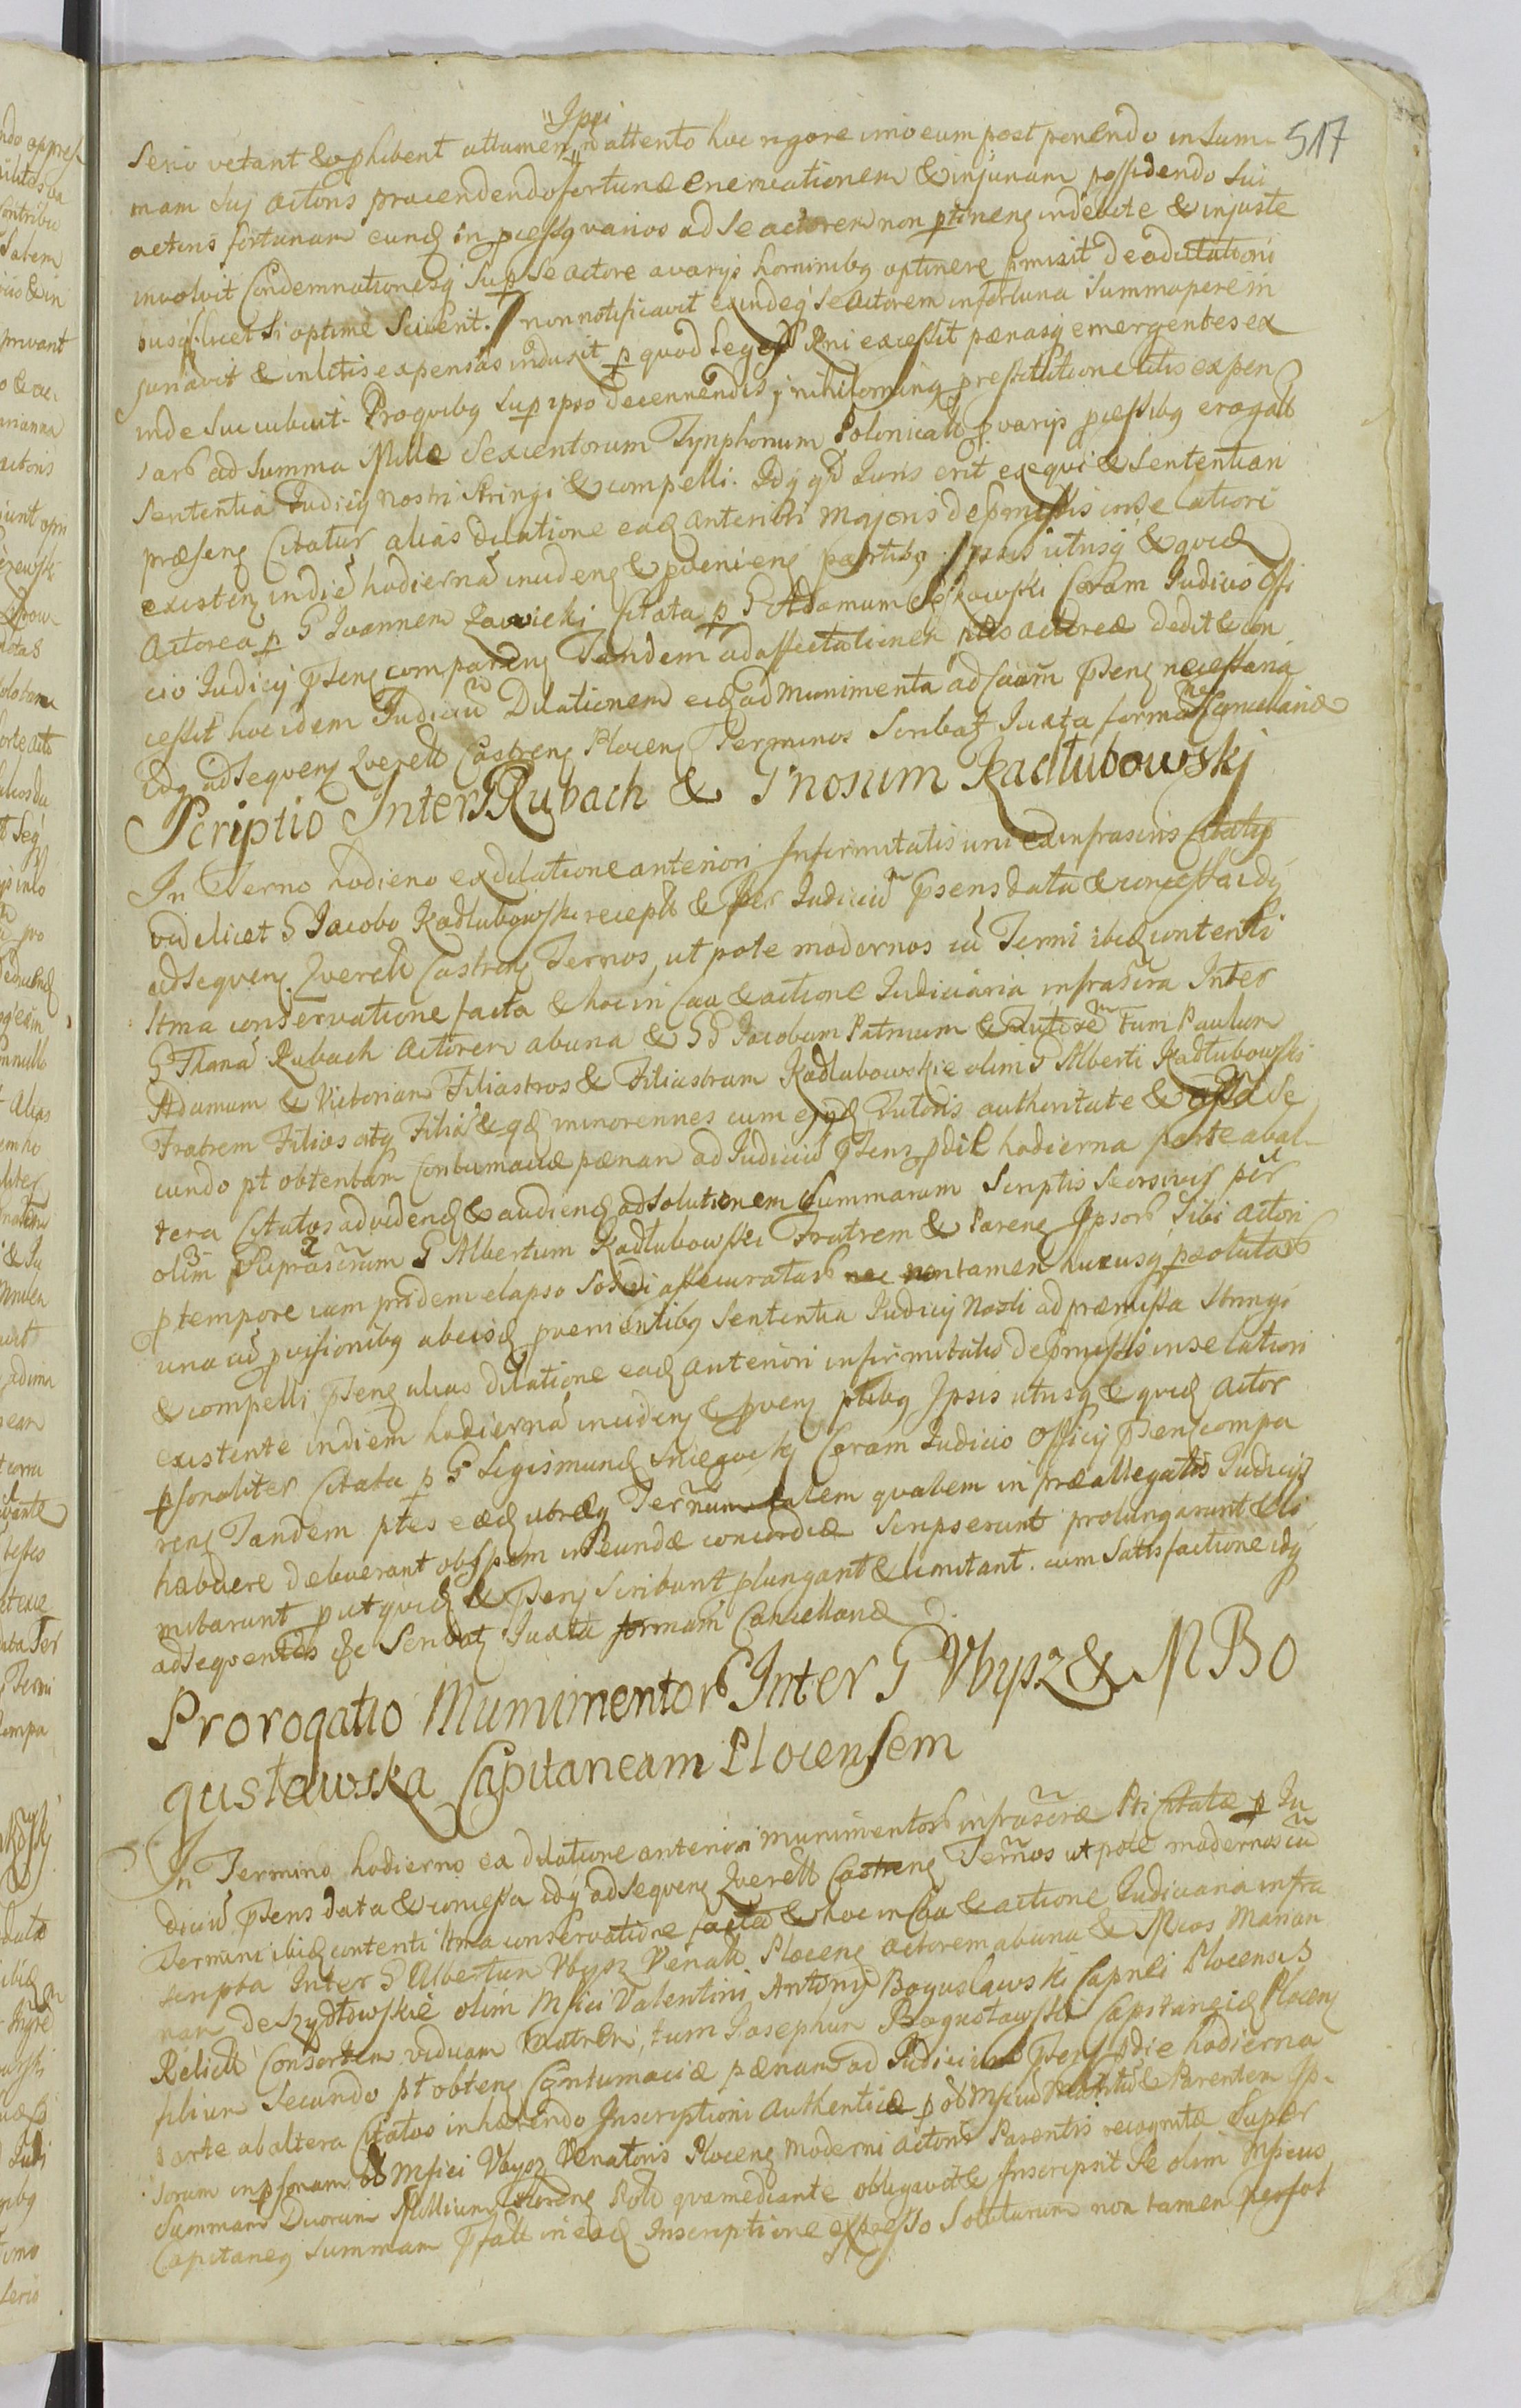 517
Ippi
serio vetant & phibent attamen n attento hoc rigore imo eum post ponendo in sum
mam suj actoris procendendo fortunæ enervationem & injuriam possidendo sui
actoris fortunam eunq in pcessq varios ad se actorem non ptineng indebite & injuste
involvit Condemnationesq sup se actore a varijs hominibq optinere pmisit de aditationi
busq licet si optime sciverit non notificavit eundeq se actorem infortuna summopere in
juriavit & in litis expensas induxit p quod leges Rni excessit pænasq emergentes ex
inde succubuit. Proqvibq sup ipso decernendis, nihilominq prestitutione litis expen
sarb ad summa Mille sexcentorum Tynphonum Polonicali p varijs pcessibq erogatb
sententia Judicij nostri stringi & compelli. Idq qd Juris erit exeqvi & sententiam
præseng Citatur alias dilatione eaq anteriori majoris de pmissis inse latiori
existenz in die hodierna incideng & pvenieng partibq ipsis utrisq & qvidq
Actorea p G Joannem Zawicki Citata p G Adamum Coram Judicio Offi
cio Judicij pseng compareng Tandem ad affectationem ptis actoreæ dedit & con
cessit hoc idem Judiciu Dilationem eiq ad munimenta ad Cauam pseng necessaria
Idq ad seqveng Qverell Castreng Ploceng Terminos Scribatz Juxta formam Cancellariæ
Scriptio Inter G Rubach & Gnosum Kadłubowskj
In Terno hodierno ex dilatione anteriori Infirmitatis uni ex infrascris Citatis
videlicet G Jacobo Kadłubowski receptb & per Judiciu psens data & concessa idq
ad seqveng Qverell Castreng Ternos, ut pote modernos cu Terni ibiq contenti
ltma conservatione facta & hoc in Cau & actione Judiciaria infrascra Inter
G Thoma Rubach Actorem ab una & GG Jacobum Patruum & Tutore Tum Paulum
Adamum & Victoriam Filiastros & Filiastram Kadłubowskie olim G Alberti Kadłubowski
Fratrem Filios atq Filia & qd minorennes cum ejq Tutoris authoritate & assa Se
cundo pt obtentam Contumaciæ pænam ad Judiciu pseng pdie hodierna parte ab al
tera Citatos ad videnq & audienq ad solutionem Summarum Scriptis seorsivis per
olim Suprascrum G Albertum Kadłubowski Fratrem & Pareng Ipsorb Sibi Actori
p tempore iam pridem elapso solvi assecuratarb nec non tamen hucusq psolutarb
una cu pvisionibq ab eisq pvenientibq sententia Judicij Nostri ad præmissa stringi
& compelli pseng alias dilatione eaq anteriori infirmitatis de pmissis inse latiori
existente in diem hodierna incideng & pveng ptibq Ipsis utrisq & qvidq Actor
psonaliter Citata p G Sigismunq Coram Judicio Officij pseng compa
reng Tandem ptes eædq utræq Ternum talem qvalem in præallegatis Judicijs
habuere debuerant ob spem ineundæ concordiæ scripserunt prolungarunt & li
mitarunt put qvidq & pseng scribunt plungant & limitant. cum satisfactione idq
ad seqventes &c Scribatz Juxta formam Cancellariæ
Prorogatio Munimentorb Inter G Vbysz & M Bo
gusławska Capitaneam Plocensem
In Termino hodierno ex dilatione anteriori munimentorb infrascræ Pti Citatæ p Ju
diciu psens data & concessa idq ad seqveng Qverell Castreng Ternos ut pote modernos cu
Termini ibiq contenti ltma conservatione facta & hoc in Cau & actione Judiciaria infra
scripta Inter G Albertum Vbysz Venatb Ploceng actorem ab una & Mcos Marian
nam de Szydłowskie olim Mfici Valentini Antonij Bogusławski Capnei Plocensis
Relicta Consortem viduam matrem, tum Josephum Bogusławski Capitaneiq Ploceng
filium Secundo pt obteng Contumaciæ pænam ad Judicium pseng pdie hodierna
parte ab altera Citatos inhærendo Inscriptioni Authenticæ p ol Mficu Maritu & Parentem Ip
sorum in psonam ol Mfici Vbysz Venatoris Ploceng moderni actoris Parentis recognitæ super
Summam Duorum Millium floreng Pold qvamediante obligavit & Inscripsit se olim Mficus
Capitaneq summam pfatt in eaq Inscriptione expresso soluturum non tamen persol